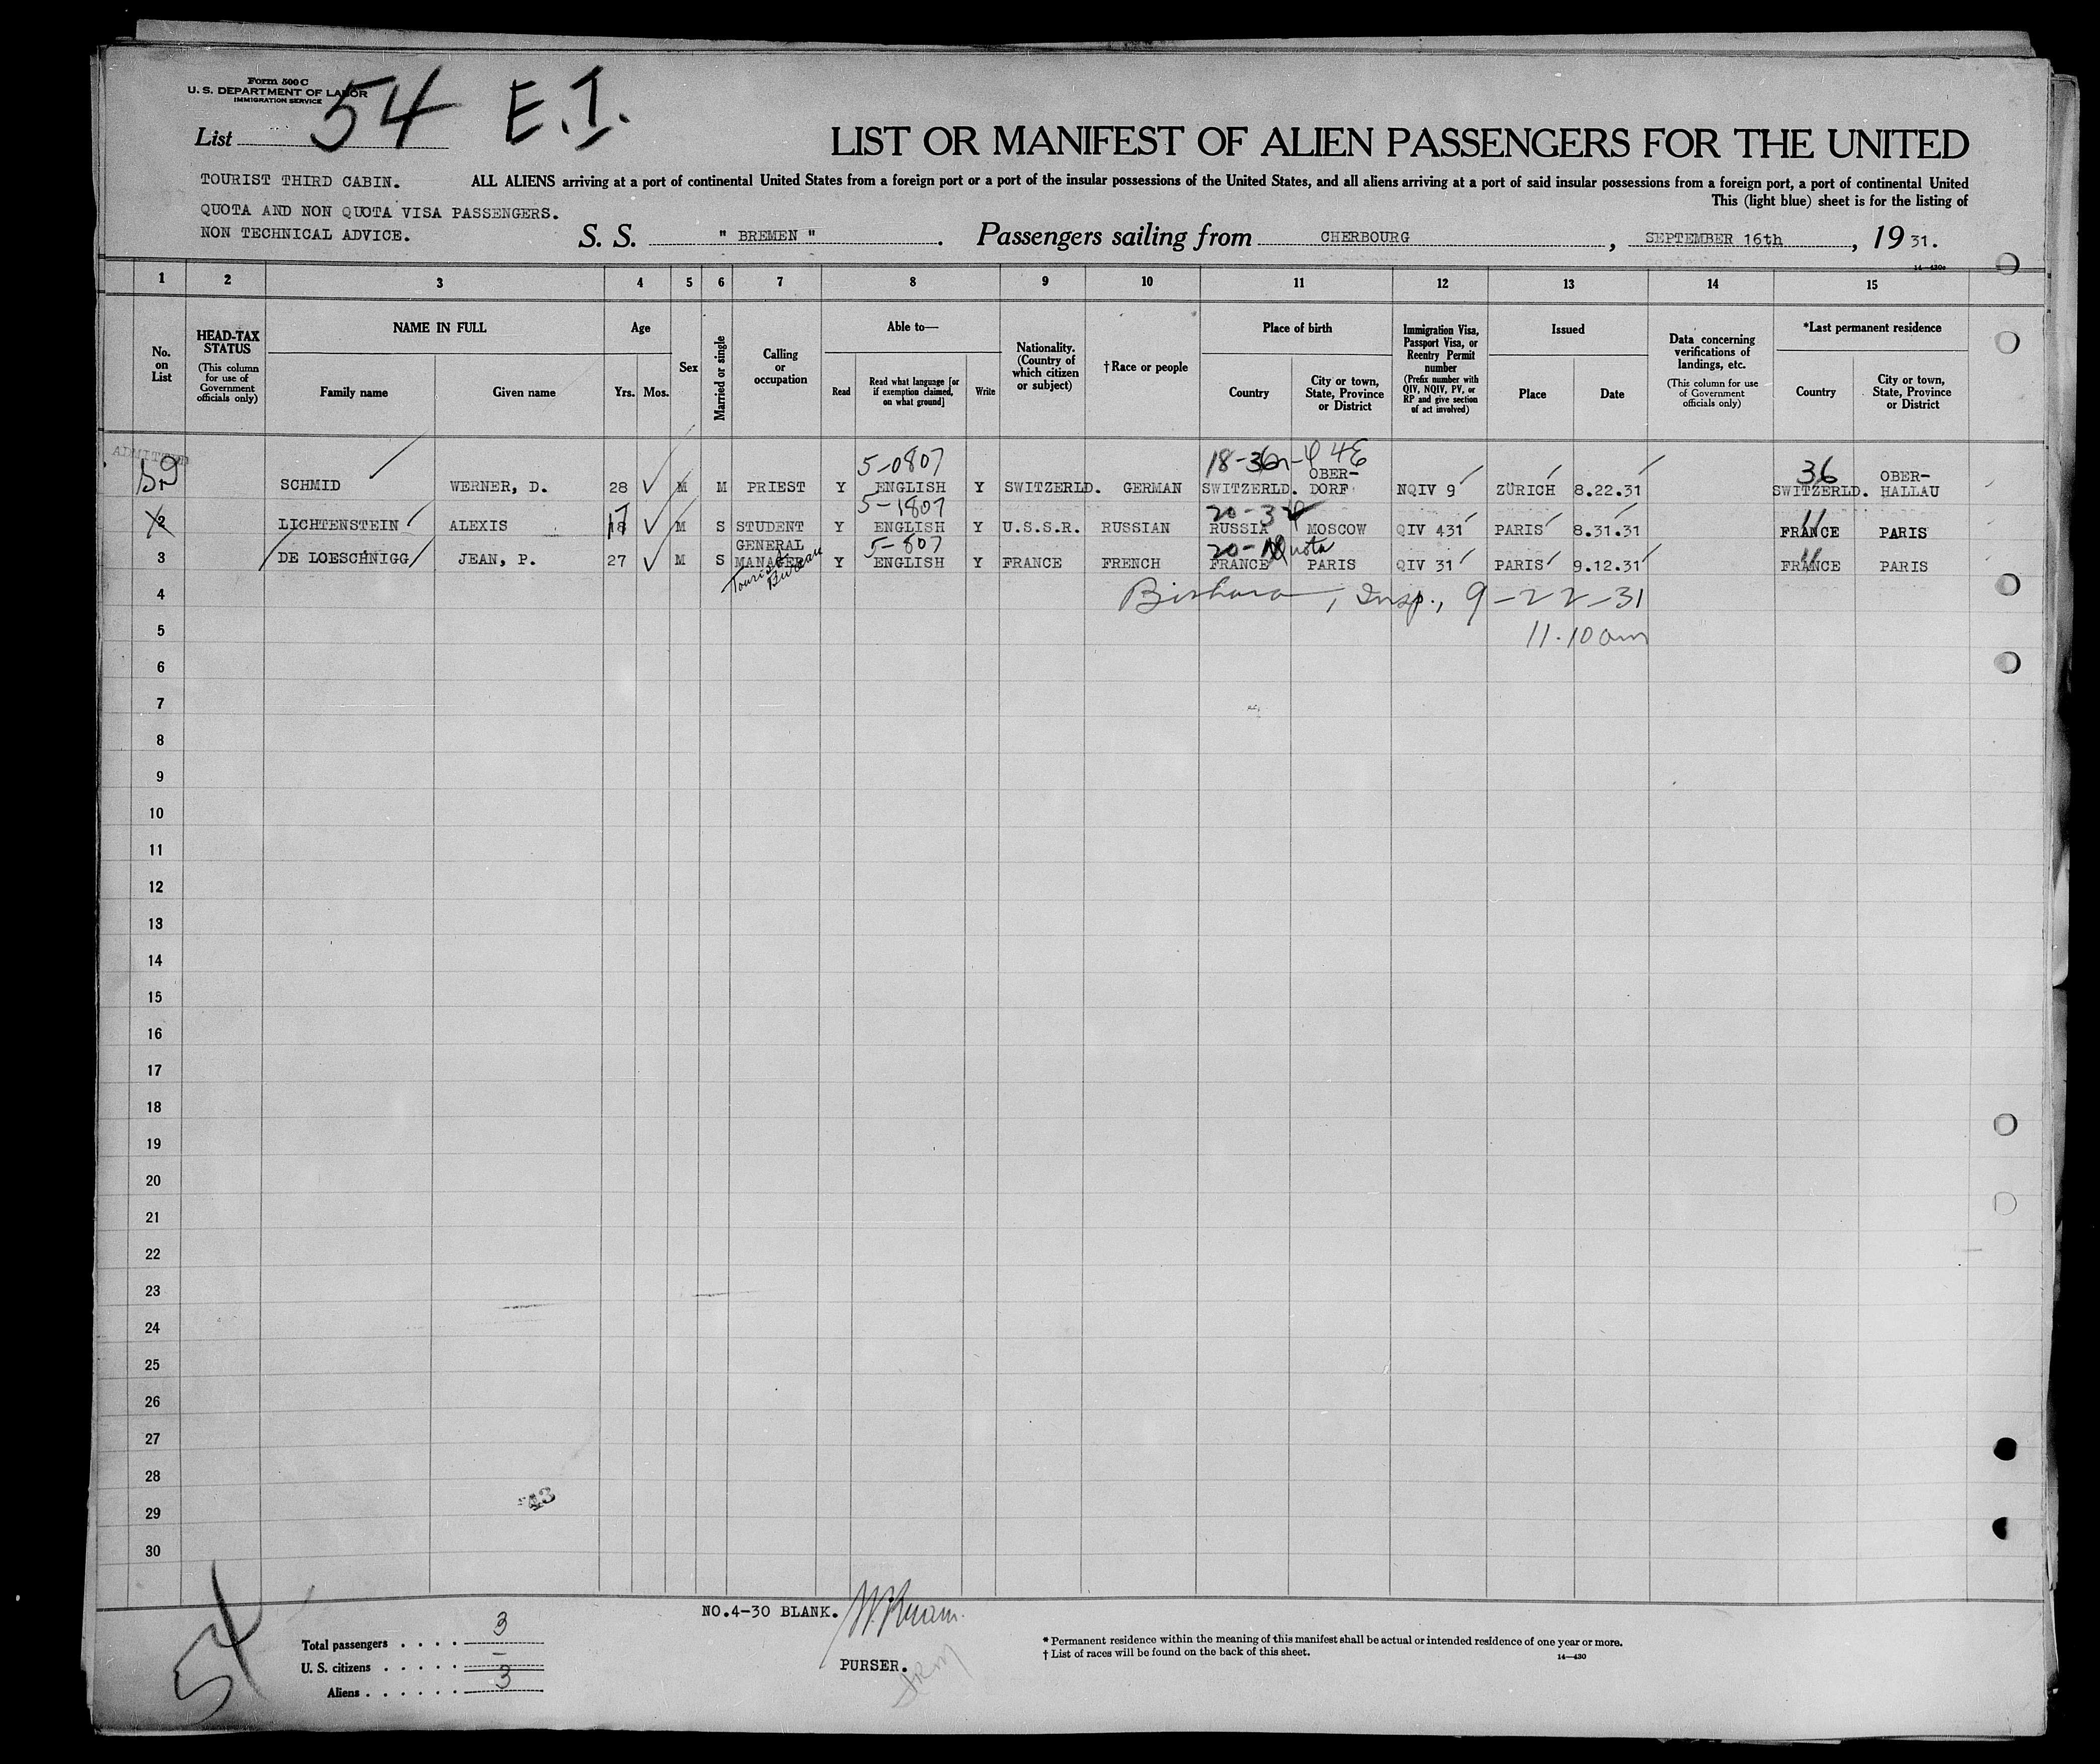 Form 500 C
U. S. DEPARTMENT OF LABOR
IMMIGRATION SERVICE
List 54 E.I.
LIST OR MANIFEST OF ALIEN PASSENGERS FOR THE UNITED
TOURIST THIRD CABIN.
ALL ALIENS arriving at a port of continental United States from a foreign port or a port of the insular possessions of the United States, and all aliens arriving at a port of said insular possessions from a foreign port, a port of continental United
QUOTA AND NON QUOTA VISA PASSENGERS.
This (light blue) sheet is for the listing of
NON TECHNICAL ADVICE.
S. S. " BREMEN " . Passengers sailing from CHERBOURG , SEPTEMBER 16th , 19 31.
1 2 3 4 5 6 7 8 9 10 11 12 13 14 15
No. on List
HEAD-TAX STATUS (This column for use of Government officials only)
NAME IN FULL
Family name Given name
Age
Yrs. Mos.
Sex
Married or single
Calling or occupation
Able to—
Read
Read what language [or if exemption claimed, on what ground]
Write
Nationality. (Country of which citizen or subject)
† Race or people
Place of birth
Country
City or town, State, Province or District
Immigration Visa, Passport Visa, or Reentry Permit number (Prefix number with QIV, NQIV, PV, or RP and give section of act involved)
Issued
Place Date
Data concerning verifications of landings, etc. (This column for use of Government officials only)
*Last permanent residence
Country
City or town, State, Province or District
ADMITTED
5-0807 36
SCHMID WERNER, D. 28 M M PRIEST Y ENGLISH Y SWITZERLD. GERMAN SWITZERLD. OBER-DORF NQIV 9 ZÜRICH 8.22.31 SWITZERLD. OBER-HALLAU
5-1807
2 LICHTENSTEIN ALEXIS 17 M S STUDENT Y ENGLISH Y U.S.S.R. RUSSIAN RUSSIA MOSCOW QIV 431 PARIS 8.31.31 FRANCE PARIS
5-807
3 DE LOESCHNIGG JEAN, P. 27 M S GENERAL MANAGER Y ENGLISH Y FRANCE FRENCH FRANCE PARIS QIV 31 PARIS 9.12.31 FRANCE PARIS
Tourist Bureau
4 Bishara, Insp., 9-22-31
5 11.10 am
6
7
8
9
10
11
12
13
14
15
16
17
18
19
20
21
22
23
24
25
26
27
28
29
30
43
54
NO.4-30 BLANK.
PURSER.
Total passengers . . . . 3
U. S. citizens . . . . . –
Aliens . . . . . . 3
* Permanent residence within the meaning of this manifest shall be actual or intended residence of one year or more.
† List of races will be found on the back of this sheet.
14—430